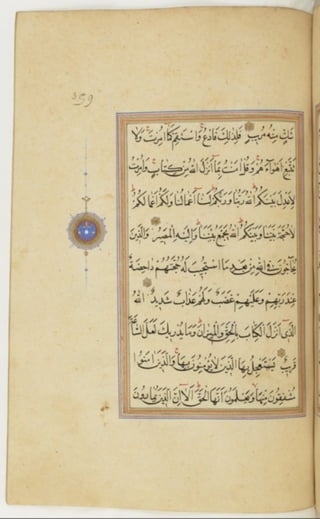 شَكٍّ مِنْهُ مُرِيبٍ فَلِذَلِكَ فَادْعُ وَاسْتَقِمْ كَمَا أُمِرْتَ وَلَا
تَتَّبِعْ أَهْوَاءَهُمْ وَقُلْ آمَنْتُ بِمَا أَنْزَلَ اللَّهُ مِنْ كِتَابٍ وَأُمِرْتُ
لِأَعْدِلَ بَيْنَكُمُ اللَّهُ رَبُّنَا وَرَبُّكُمْ لَنَا أَعْمَالُنَا وَلَكُمْ أَعْمَالُكُمْ
لَا حُجَّةَ بَيْنَنَا وَبَيْنَكُمُ اللَّهُ يَجْمَعُ بَيْنَنَا وَإِلَيْهِ الْمَصِيرُ وَالَّذِينَ
يُحَاجُّونَ فِي اللَّهِ مِنْ بَعْدِ مَا اسْتُجِيبَ لَهُ حُجَّتُهُمْ دَاحِضَةٌ
عِنْدَ رَبِّهِمْ وَعَلَيْهِمْ غَضَبٌ وَلَهُمْ عَذَابٌ شَدِيدٌ اللَّهُ
الَّذِي أَنْزَلَ الْكِتَابَ بِالْحَقِّ وَالْمِيزَانَ وَمَا يُدْرِيكَ لَعَلَّ السَّاعَةَ
قَرِيبٌ يَسْتَعْجِلُ بِهَا الَّذِينَ لَا يُؤْمِنُونَ بِهَا وَالَّذِينَ آمَنُوا
مُشْفِقُونَ مِنْهَا وَيَعْلَمُونَ أَنَّهَا الْحَقُّ أَلَا إِنَّ الَّذِينَ يُمَارُونَ